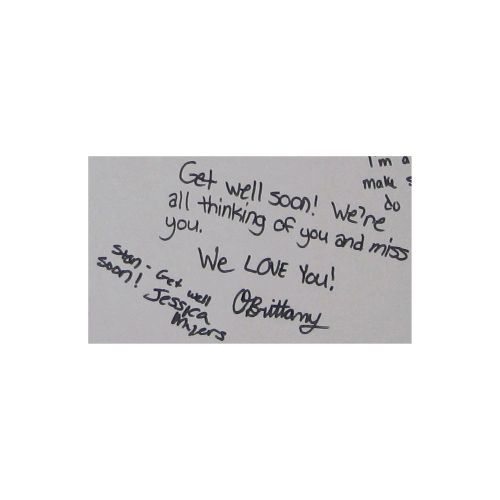 Get well soon! We're
all thinking of you and miss
you.
We LOVE YOU!
Brittany
Stan - Get well
soon!
Jessica
Myers
I'm a
make s
do